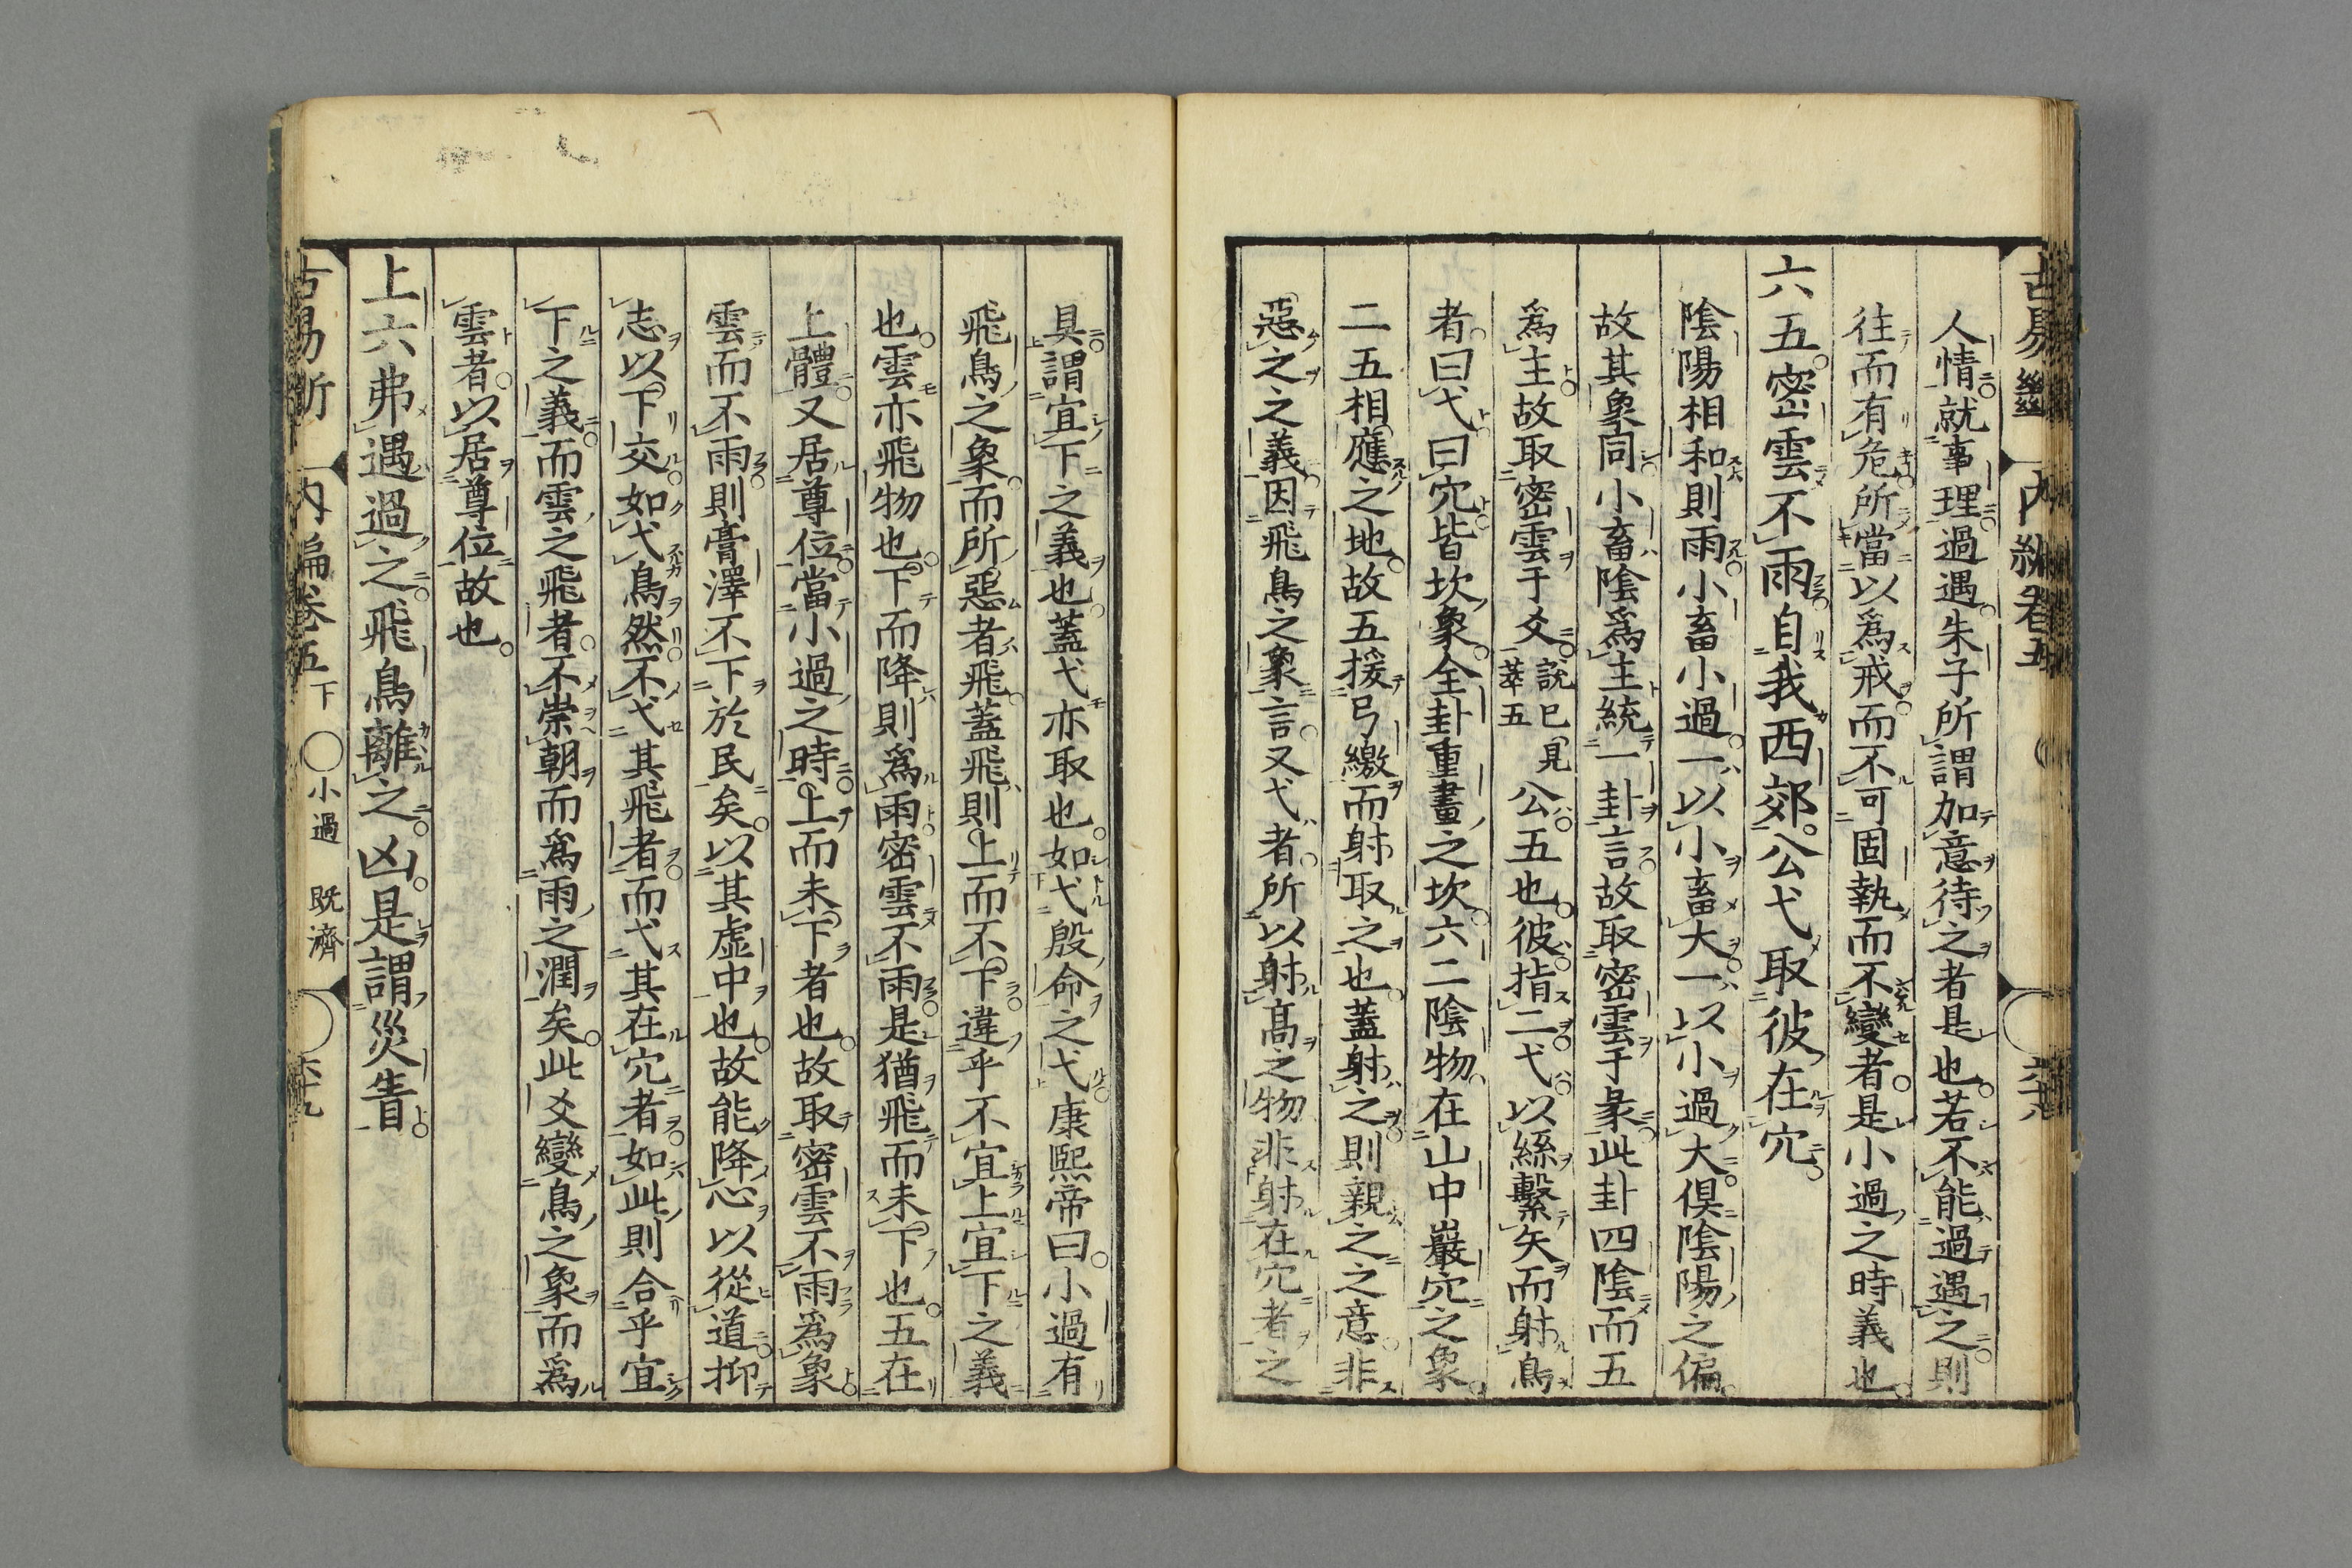 人情就事理過遇朱子所謂加意待之者是也若不能過遇之則
往而有危所當以爲戒而不可固執而不變者是小過之時義也
六五密雲不雨自我西郊公弋取彼在穴
陰陽相和則雨小畜小過一以小畜大一以小過大俱陰陽之偏
故其象同小畜陰爲主統一卦言故取密雲于彖此卦四陰而五
爲主故取密雲于爻說已見萃五公五也彼指二弋以絲繫矢而射鳥
者曰弋曰穴皆坎象全卦重畫之坎六二陰物在山中巖穴之象
二五相應之地故五援弓繳而射取之也蓋射之則親之之意非
惡之之義因飛鳥之象言又弋者所以射高之物非射在穴者之
具謂宜下之義也蓋弋亦取也如弋殷命之弋康熙帝曰小過有
飛鳥之象而所惡者飛蓋飛則上而不下違乎不宜上宜下之義
也雲亦飛物也下而降則爲雨密雲不雨是猶飛而未下也五在
上體又居尊位當小過之時上而未下者也故取密雲不雨爲象
雲而不雨則膏澤不下於民矣以其虛中也故能降心以從道抑
志以下交如弋鳥然不弋其飛者而弋其在穴者如此則合乎宜
下之義而雲之飛者不崇朝而爲雨之潤矣此爻變鳥之象而爲
雲者以居尊位故也
上六弗遇過之飛鳥離之凶是謂災眚
内編卷五下 ○小過 既濟